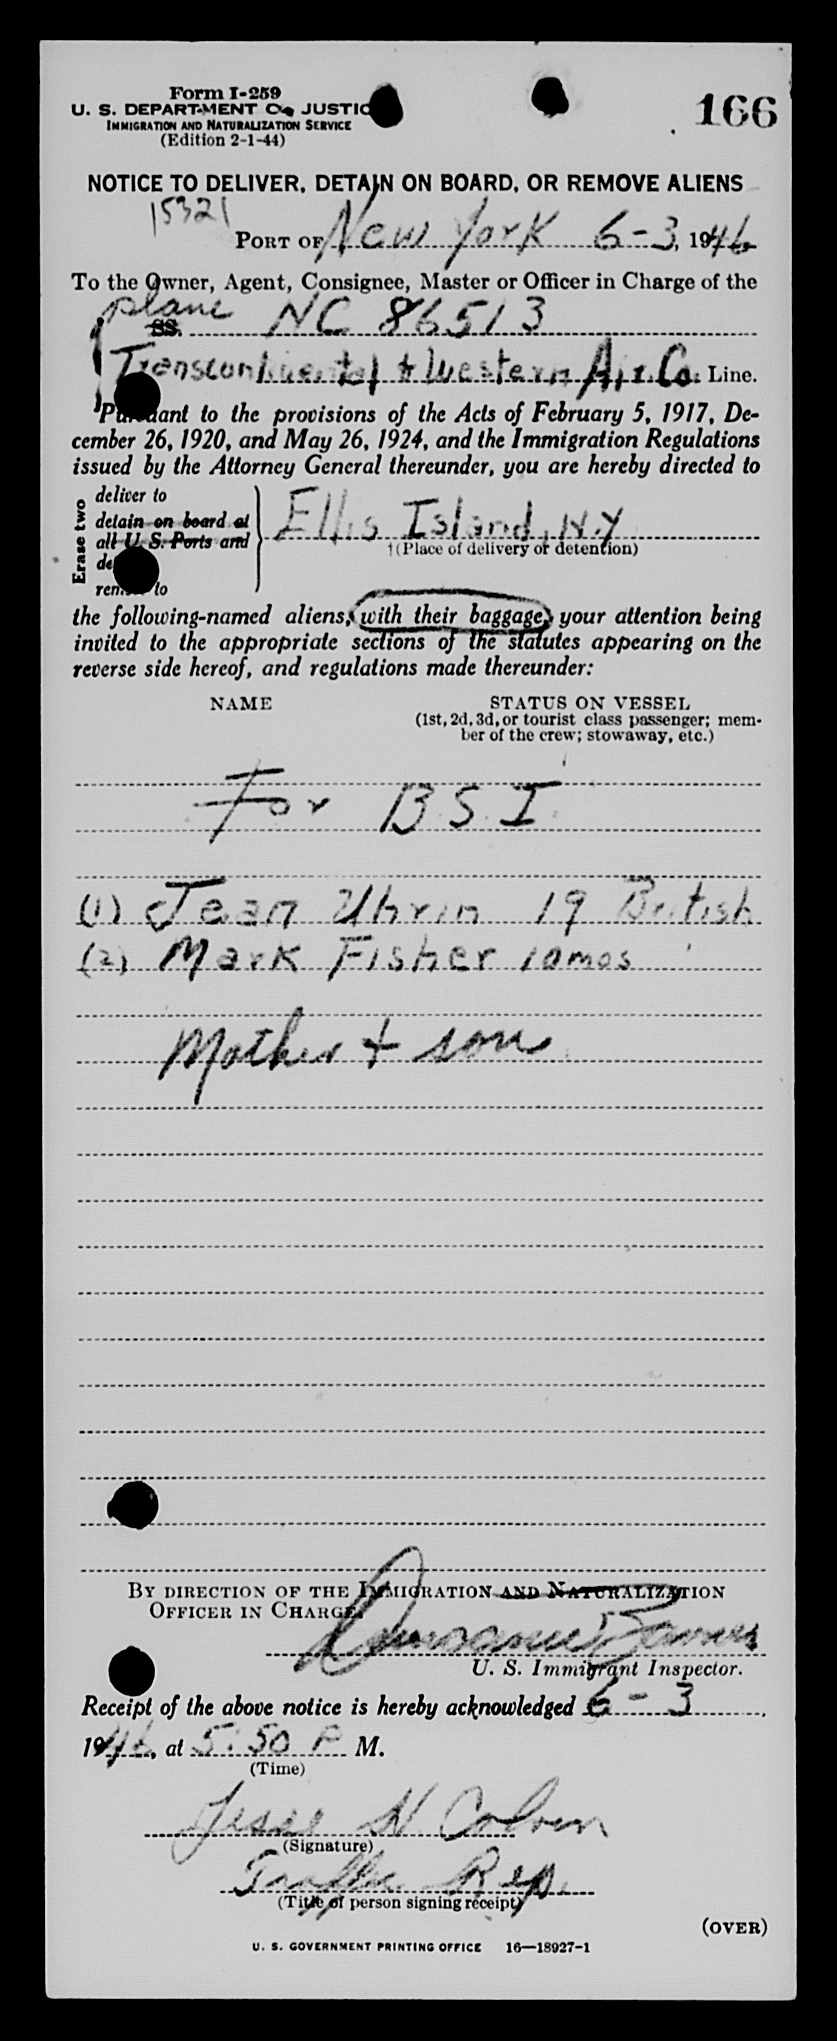 Form I-259
U. S. DEPARTMENT OF JUSTIC
IMMIGRATION AND NATURALIZATION SERVICE
(Edition 2-1-44)
166
NOTICE TO DELIVER, DETAIN ON BOARD, OR REMOVE ALIENS
15321
PORT OF New York 6-3, 1946
To the Owner, Agent, Consignee, Master or Officer in Charge of the
plane
SS. NC 86513
Transcontinental & Western Air Co. Line.
Pursuant to the provisions of the Acts of February 5, 1917, De-
cember 26, 1920, and May 26, 1924, and the Immigration Regulations
issued by the Attorney General thereunder, you are hereby directed to
Erase two
deliver to
detain on board at
all U. S. Ports and
de
remove to
Ellis Island, N.Y
†(Place of delivery or detention)
the following-named aliens, with their baggage, your attention being
invited to the appropriate sections of the statutes appearing on the
reverse side hereof, and regulations made thereunder:
NAME STATUS ON VESSEL
(1st, 2d, 3d, or tourist class passenger; mem-
ber of the crew; stowaway, etc.)
For B.S.I.
(1) Jean Uhrin 19 British
(2) Mark Fisher 10mos "
Mother + son
BY DIRECTION OF THE IMMIGRATION AND NATURALIZATION
OFFICER IN CHARGE,
U. S. Immigrant Inspector.
Receipt of the above notice is hereby acknowledged 6-3,
1946, at 5:50 P M.
(Time)
Jesse N. Colven
(Signature)
Traffic Rep.
(Title of person signing receipt)
(OVER)
U. S. GOVERNMENT PRINTING OFFICE 16—18927-1